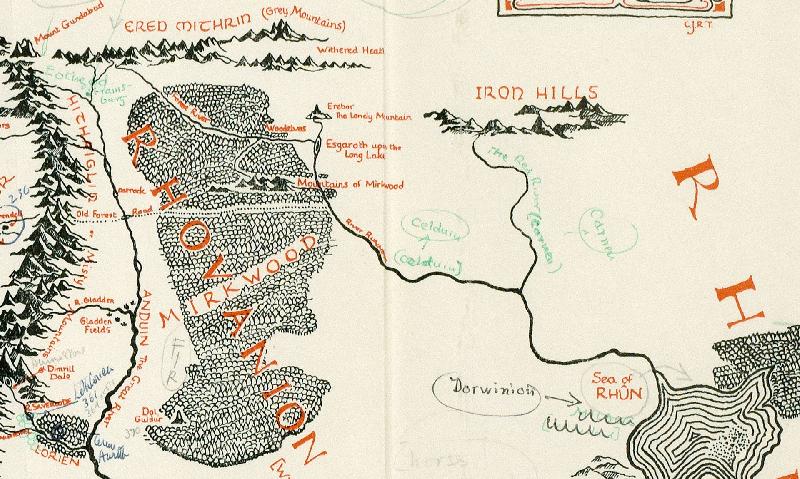 Mount Gundabad
ERED MITHRIN (Grey Mountains)
Withered Heath
J.R.T.
IRON HILLS
Erebor
The Lonely Mountain
Forest River
Woodelves
Esgaroth upon the
Long Lake
Mountains of Mirkwood
HITHAEGLIR
Carrock
Old Forest Road
River Running
Celduin
(Celduin)
The Red River (Carnen)
Carnen
RHOVANION
MIRKWOOD
R H
or Misty Mountains
R. Gladden
Gladden
Fields
ANDUIN The Great River
Dimrill
Dale
R. Silverlode
LORIEN
Dol
Guldur
FIR
Dorwinion
Sea of
RHÛN